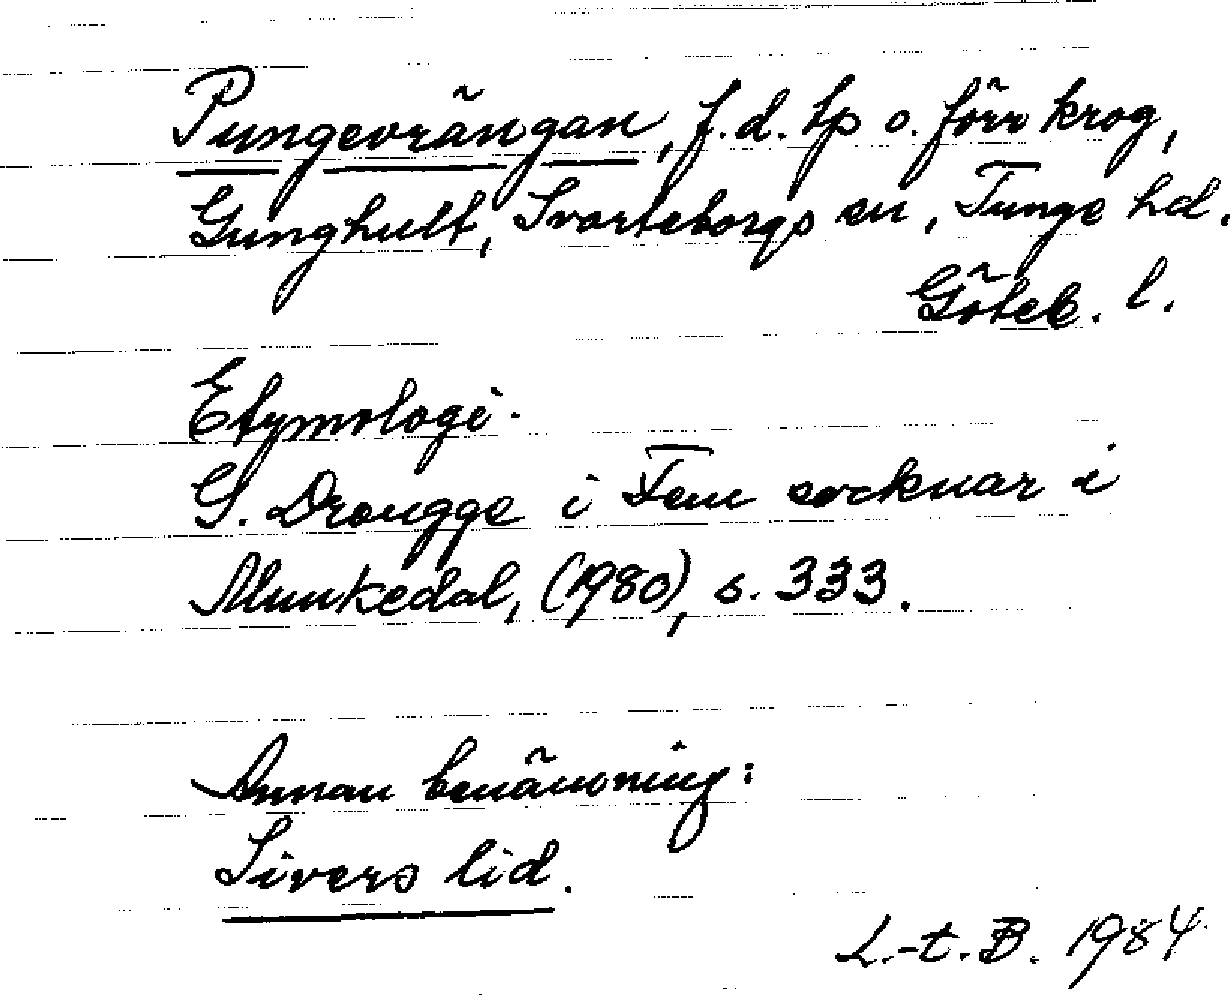 Pungevrängan, f.d. tp o. förr krog,
Gunghult, Svarteborgs sn, Tunge hd.
Göteb. l.
Etymologi.
G. Drougge i Fem socknar i
Munkedal, (1980), s. 333.
Annan benämning:
Sivers lid.
L.-t. B. 1984